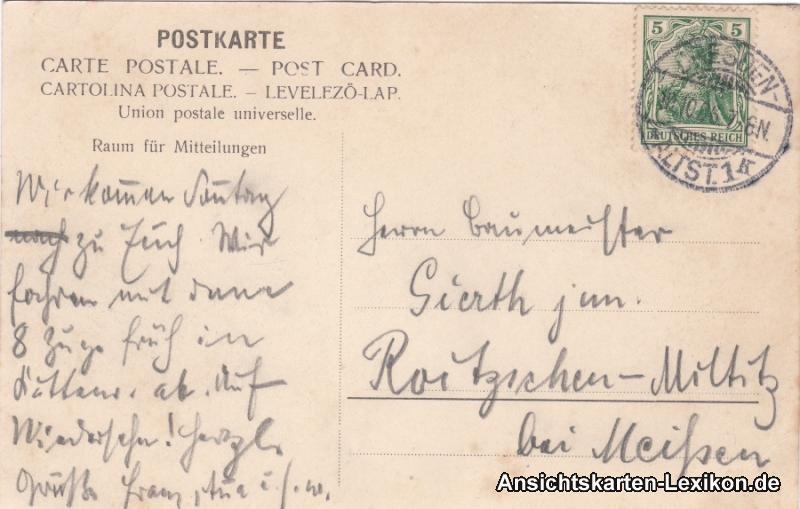 POSTKARTE
CARTE POSTALE. — POST CARD.
CARTOLINA POSTALE. – LEVELEZŐ-LAP.
Union postale universelle.
Raum für Mitteilungen
5 5
DEUTSCHES REICH
DRESDEN-
ALTST. 14
Wir kommen Sonntag
nach zu Euch. Wir
fahren mit dem
8 Zuge früh in
ab. Auf
Wiedersehn! Herzl.
Grüße Franz, u.s.w.
Herrn Baumeister
Gierth jun.
Roitzschen-Miltitz
bei Meißen
Ansichtskarten-Lexikon.de